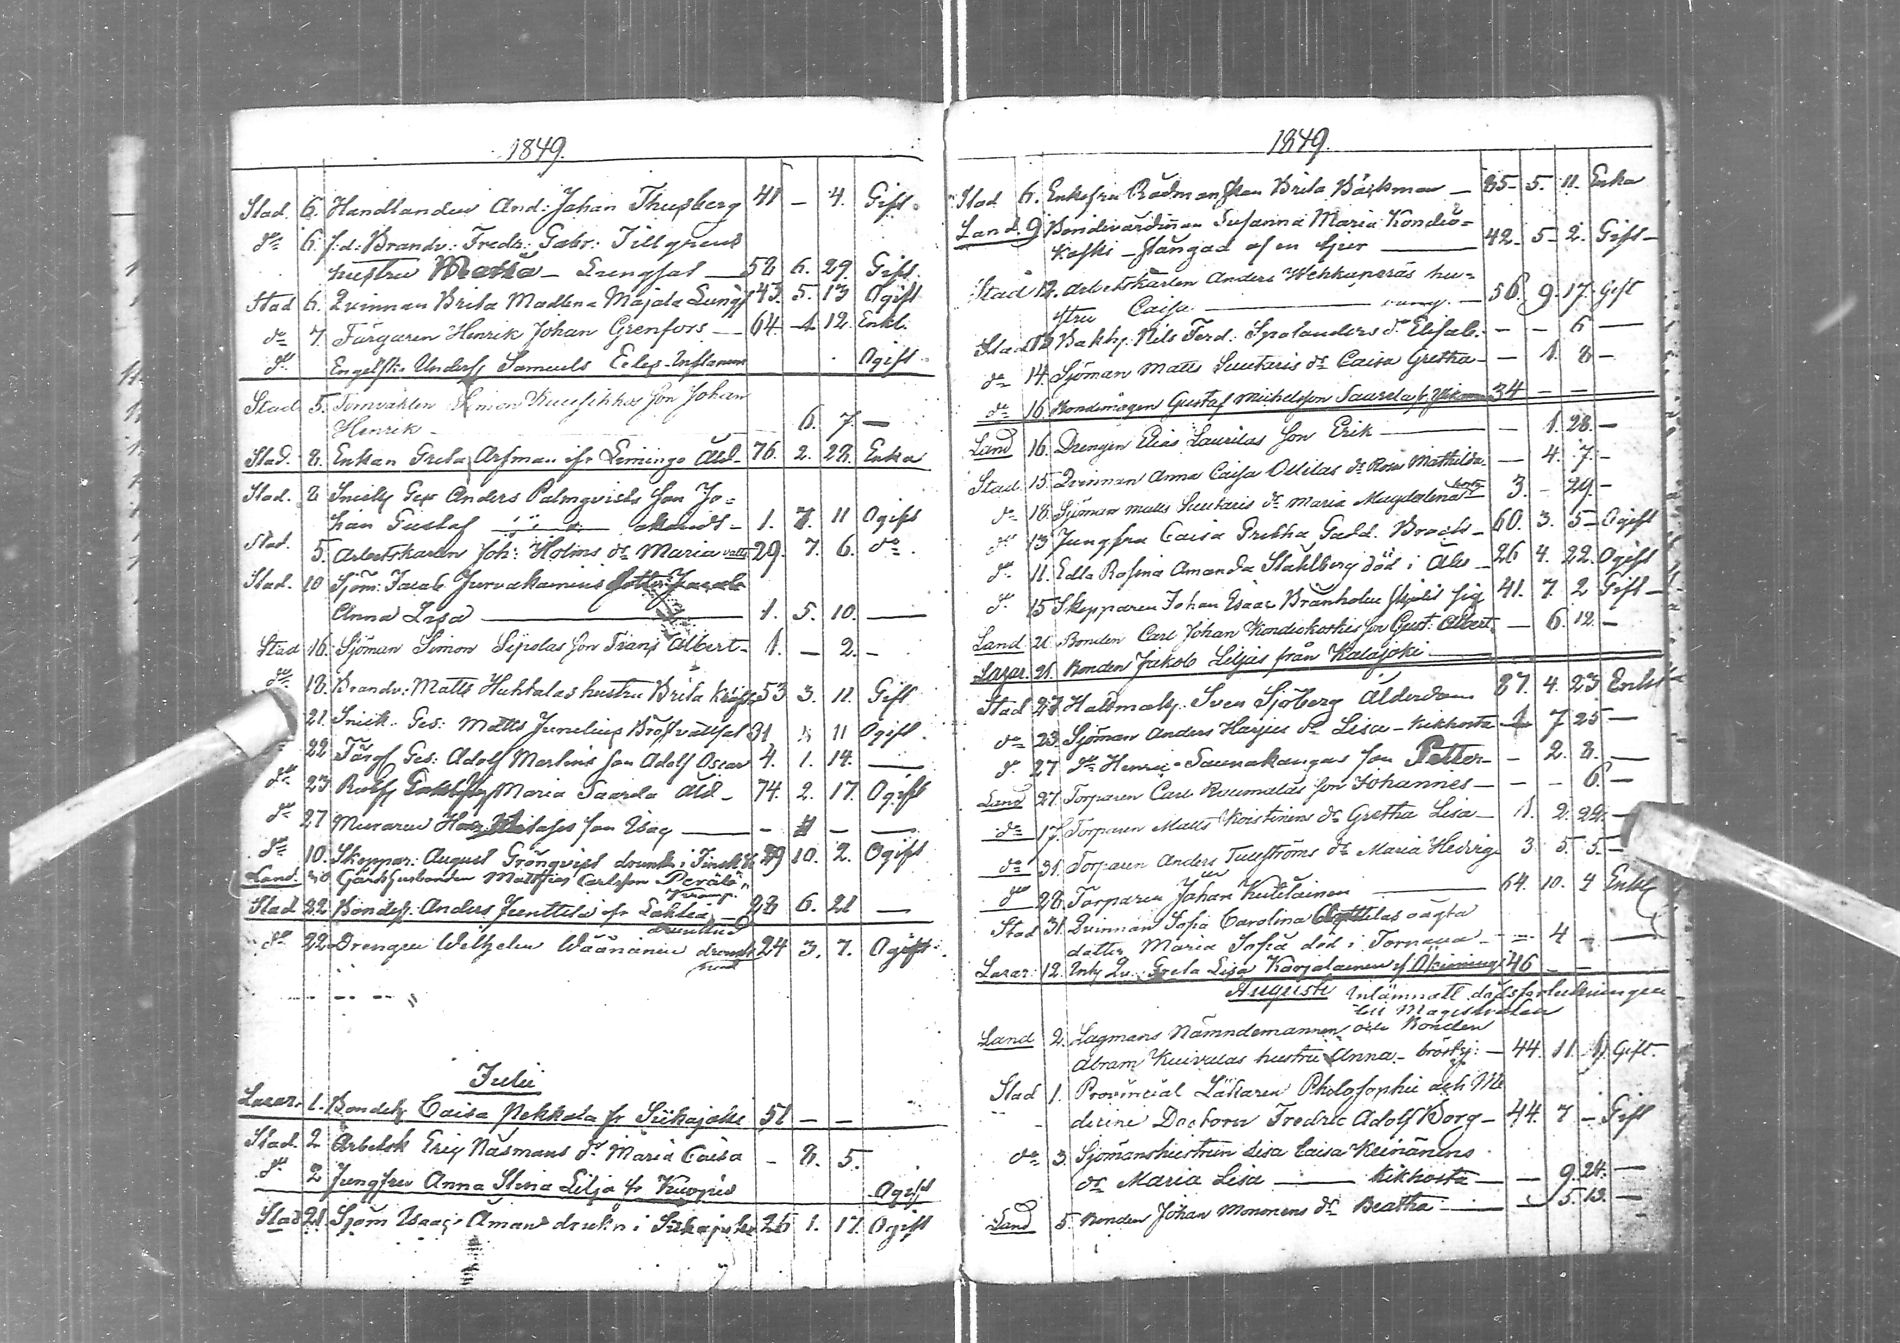 1849.
Stad. 6. Handlanden And: Johan Thusberg 41 - 4. Gift.
do 6. f.d. Brandv: Fredr: Gabr: Tillgrens
hustru Maria - Lungsot - 58 6. 29. Gift.
Stad 6. Qvinnan Brita Madlena Majala Lungs 43. 5. 13 Ogift
do 7. Färgaren Henrik Johan Grenfors - 64 - 1 12. Enkl.
do Engelsk Unders Samuels Ogift.
Stad 5. Simon son Johan
Henrik - 6. 7. -
Stad. 8. Enkan Greta Arfman ifr Limingo Åld. 76. 2. 28. Enka
Stad. 8 Snick Ges Anders Palmqvists son Jo=
han Gustaf - 1. 7. 11 Ogift
Stad. 5. Arbetskaren Joh: Holms dr Maria 29. 7. 6. do.
Stad. 10 Sjöm: Jacob Jurvakainens
Anna Lisa - 1. 5. 10. -
Stad 16. Sjöman Simon Sipolas son Frans Albert - 1. - 2. -
do 18. Brandv: Matts Huhtalas hustru Brita Kräft 53 3. 11. Gift
21. Snick. Ges: Matts Junelius Bröstvattsot 31 11 Ogift.
22 Färg. Ges: Adolf Martins son Adolf Oscar 4. 1. 14. -
do 23 Maria Saarela Åld - 74. 2. 17. Ogift
do 27 Muraren son Isac - - - -
do 10. Skeppar: August Grönqvist drunk i Finsk 29 10. 2. Ogift
Land. 30 Matthias Carlsson Perälä
Stad 22 Bondes. Anders Junttila ifr - 28 6. 21 -
drunknad
do 22. Drengen Wilhelm Wäänänen drunk 24 3. 7. Ogift.
nad
Julii
Lazar. 1. Bondeh Caisa Pekkala fr Siikajoki 51 - -
Stad. 2 Arbetsk Eric Näsmans dr Maria Caisa - 8. 5.
do 2 Jungfru Anna Stina Lilja fr Kuopio Ogift
Stad 21. Sjöm Isac Åman drukn i Siikajoki 26 1. 17. Ogift
1849.
Stad 6. Enkefru Rådmanskan Brita Bäckman - 85 - 5. 11. Enka
Land. 9 Bondevärdinnan Susanna Maria Kondio=
koski - stångad af en tjur - 42. 5 - 2. Gift -
Stad 12. Arbetskarlen Anders Wehkaperäs hu=
stru Caisa - 56. 9. 17. Gift
Stad 12 Bakhg. Nils Ferd. Sjolanders dr Elisab. - - 6 -
do 14. Sjöman Matts Suutaris dr Caisa Gretha - - 1. 8 -
do 16 Bondemågen Gustaf Michelsson Saarela fr 34 - -
Land 16. Drengen Elias Laurilas son Erik - - 1. 28. -
Stad 15. Qvinnan Anna Caisa Ollilas dr Rosa Mathilda - 4. 7 -
do 18. Sjöman Matts Suutaris dr Maria Magdalena 3. - 29. -
do 13 Jungfru Caisa Gretha Gald. Brocks - 60. 3. 5 - Ogift
do 11. Edla Rosina Amanda Ståhlberg död i Åbo - 26 4. 22. Ogift
do 15 Skepparen Johan Isaac Bränholm skjöt sig 41. 7. 2 Gift -
Land 21. Bonden Carl Johan Kondiokoskis son Gust. Albert - 6. 12. -
Lazar. 21. Bonden Jakob Liljus från Kalajoki -
Stad 27 Hallmak. Sven Sjöberg Ålderdom 87. 4. 23 Enkl
do 23. Sjöman Anders Harjus dr Lisa - kikhosta 1 7 25 -
do 27 do Henric Saunakangas son Petter - - 2. 8. -
Land 27. Torparen Carl Roumalas son Johannes - - - 6. -
do 17. Torparen Matts Koistinens dr Gretha Lisa - 1. 2. 22. -
do 31. Torparen Anders Tuuströms dr Maria Hedvig 3 5. 5. -
do 28. Torparen Johan Kutilainen - 64. 10. 4 Enkl
Stad 31. Qvinnan Sofia Carolina oägta
dotter Maria Sofia död i Tornea - - 4 - -
Lazar. 12. Greta Lisa Karjalainen 46 - -
Augusti Inlämnatt dödsförtekningen
till Magistraten
Land 2. Lagmans Nämndemannen och Bonden
Abram Kuivalas hustru Anna - brösts: - 44. 11. Gift.
Stad 1. Provincial Läkaren Philosophie och Me
dicine Doctorn Fredric Adolf Borg - 44. 7 - Gift
do 3. Sjömanshustrun Lisa Caisa Keinänens
dr Maria Lisa - kikhosta - - 9. 24. -
Land 5. Bonden Johan Mononens dr Beatha - - 5. 13. -